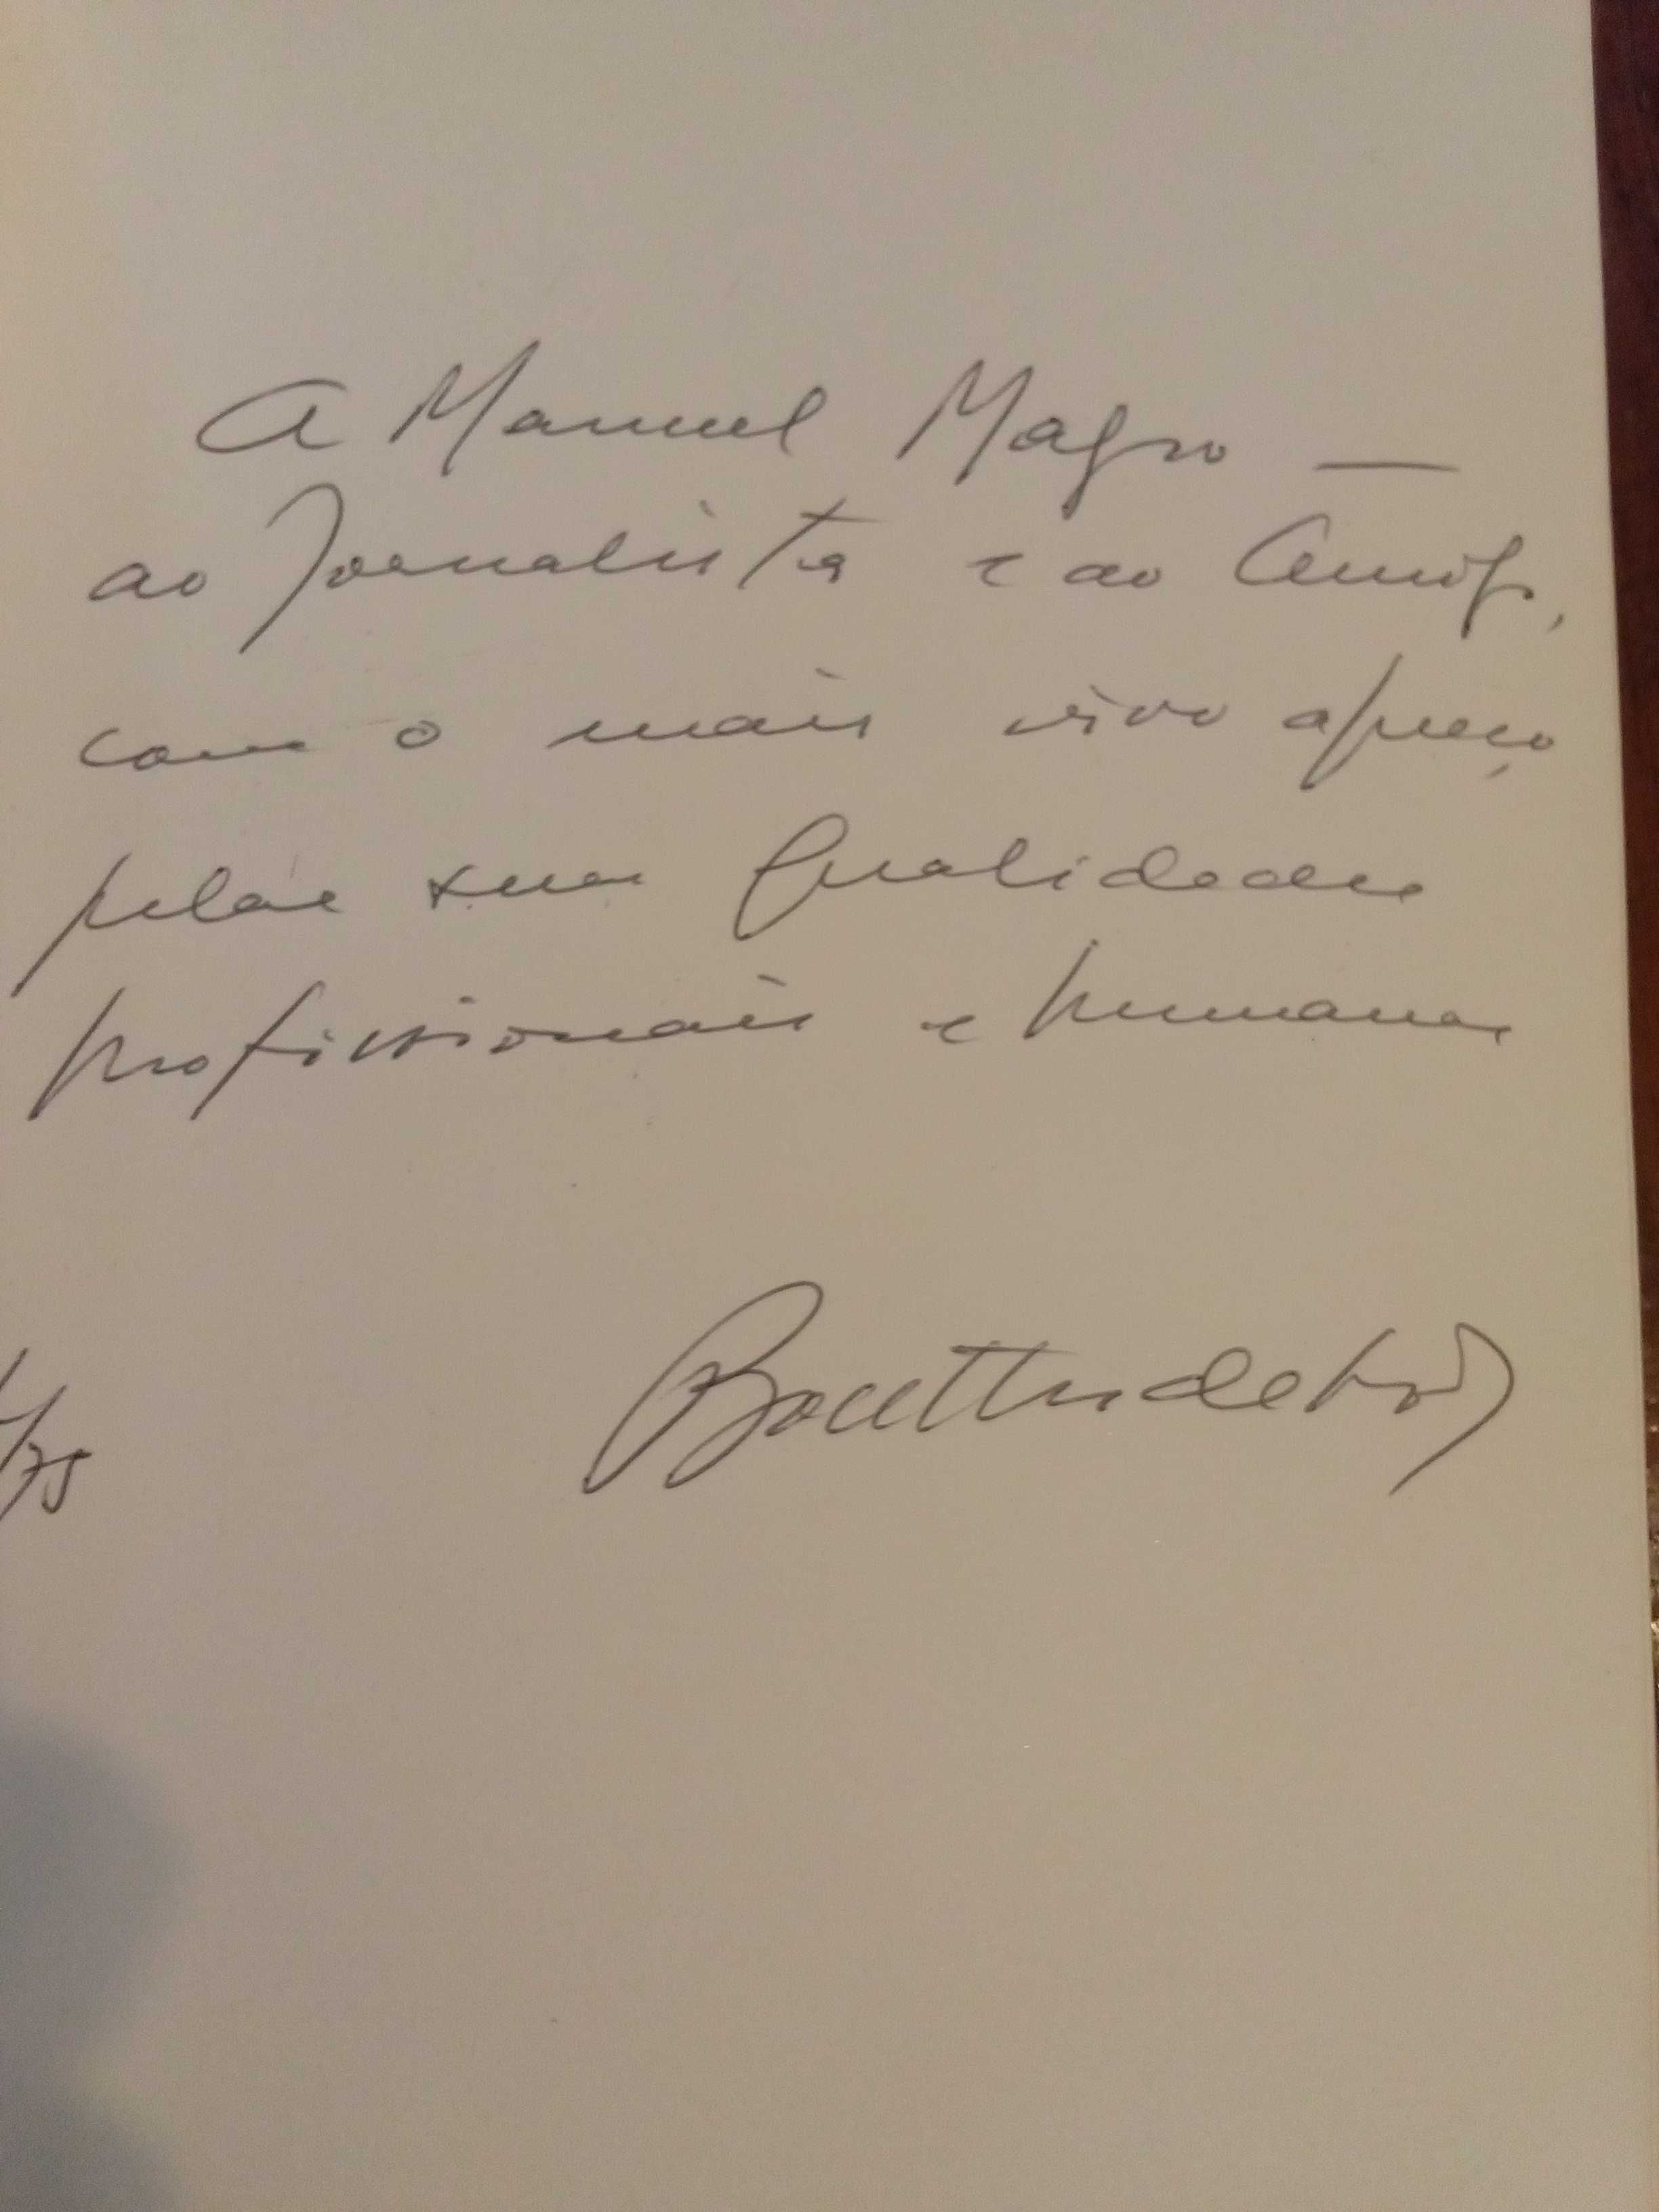 A Manuel Magro —
ao Jornalista e ao Amigo,
com o mais vivo apreço
pelas suas Qualidades
profissionais e humanas
/75